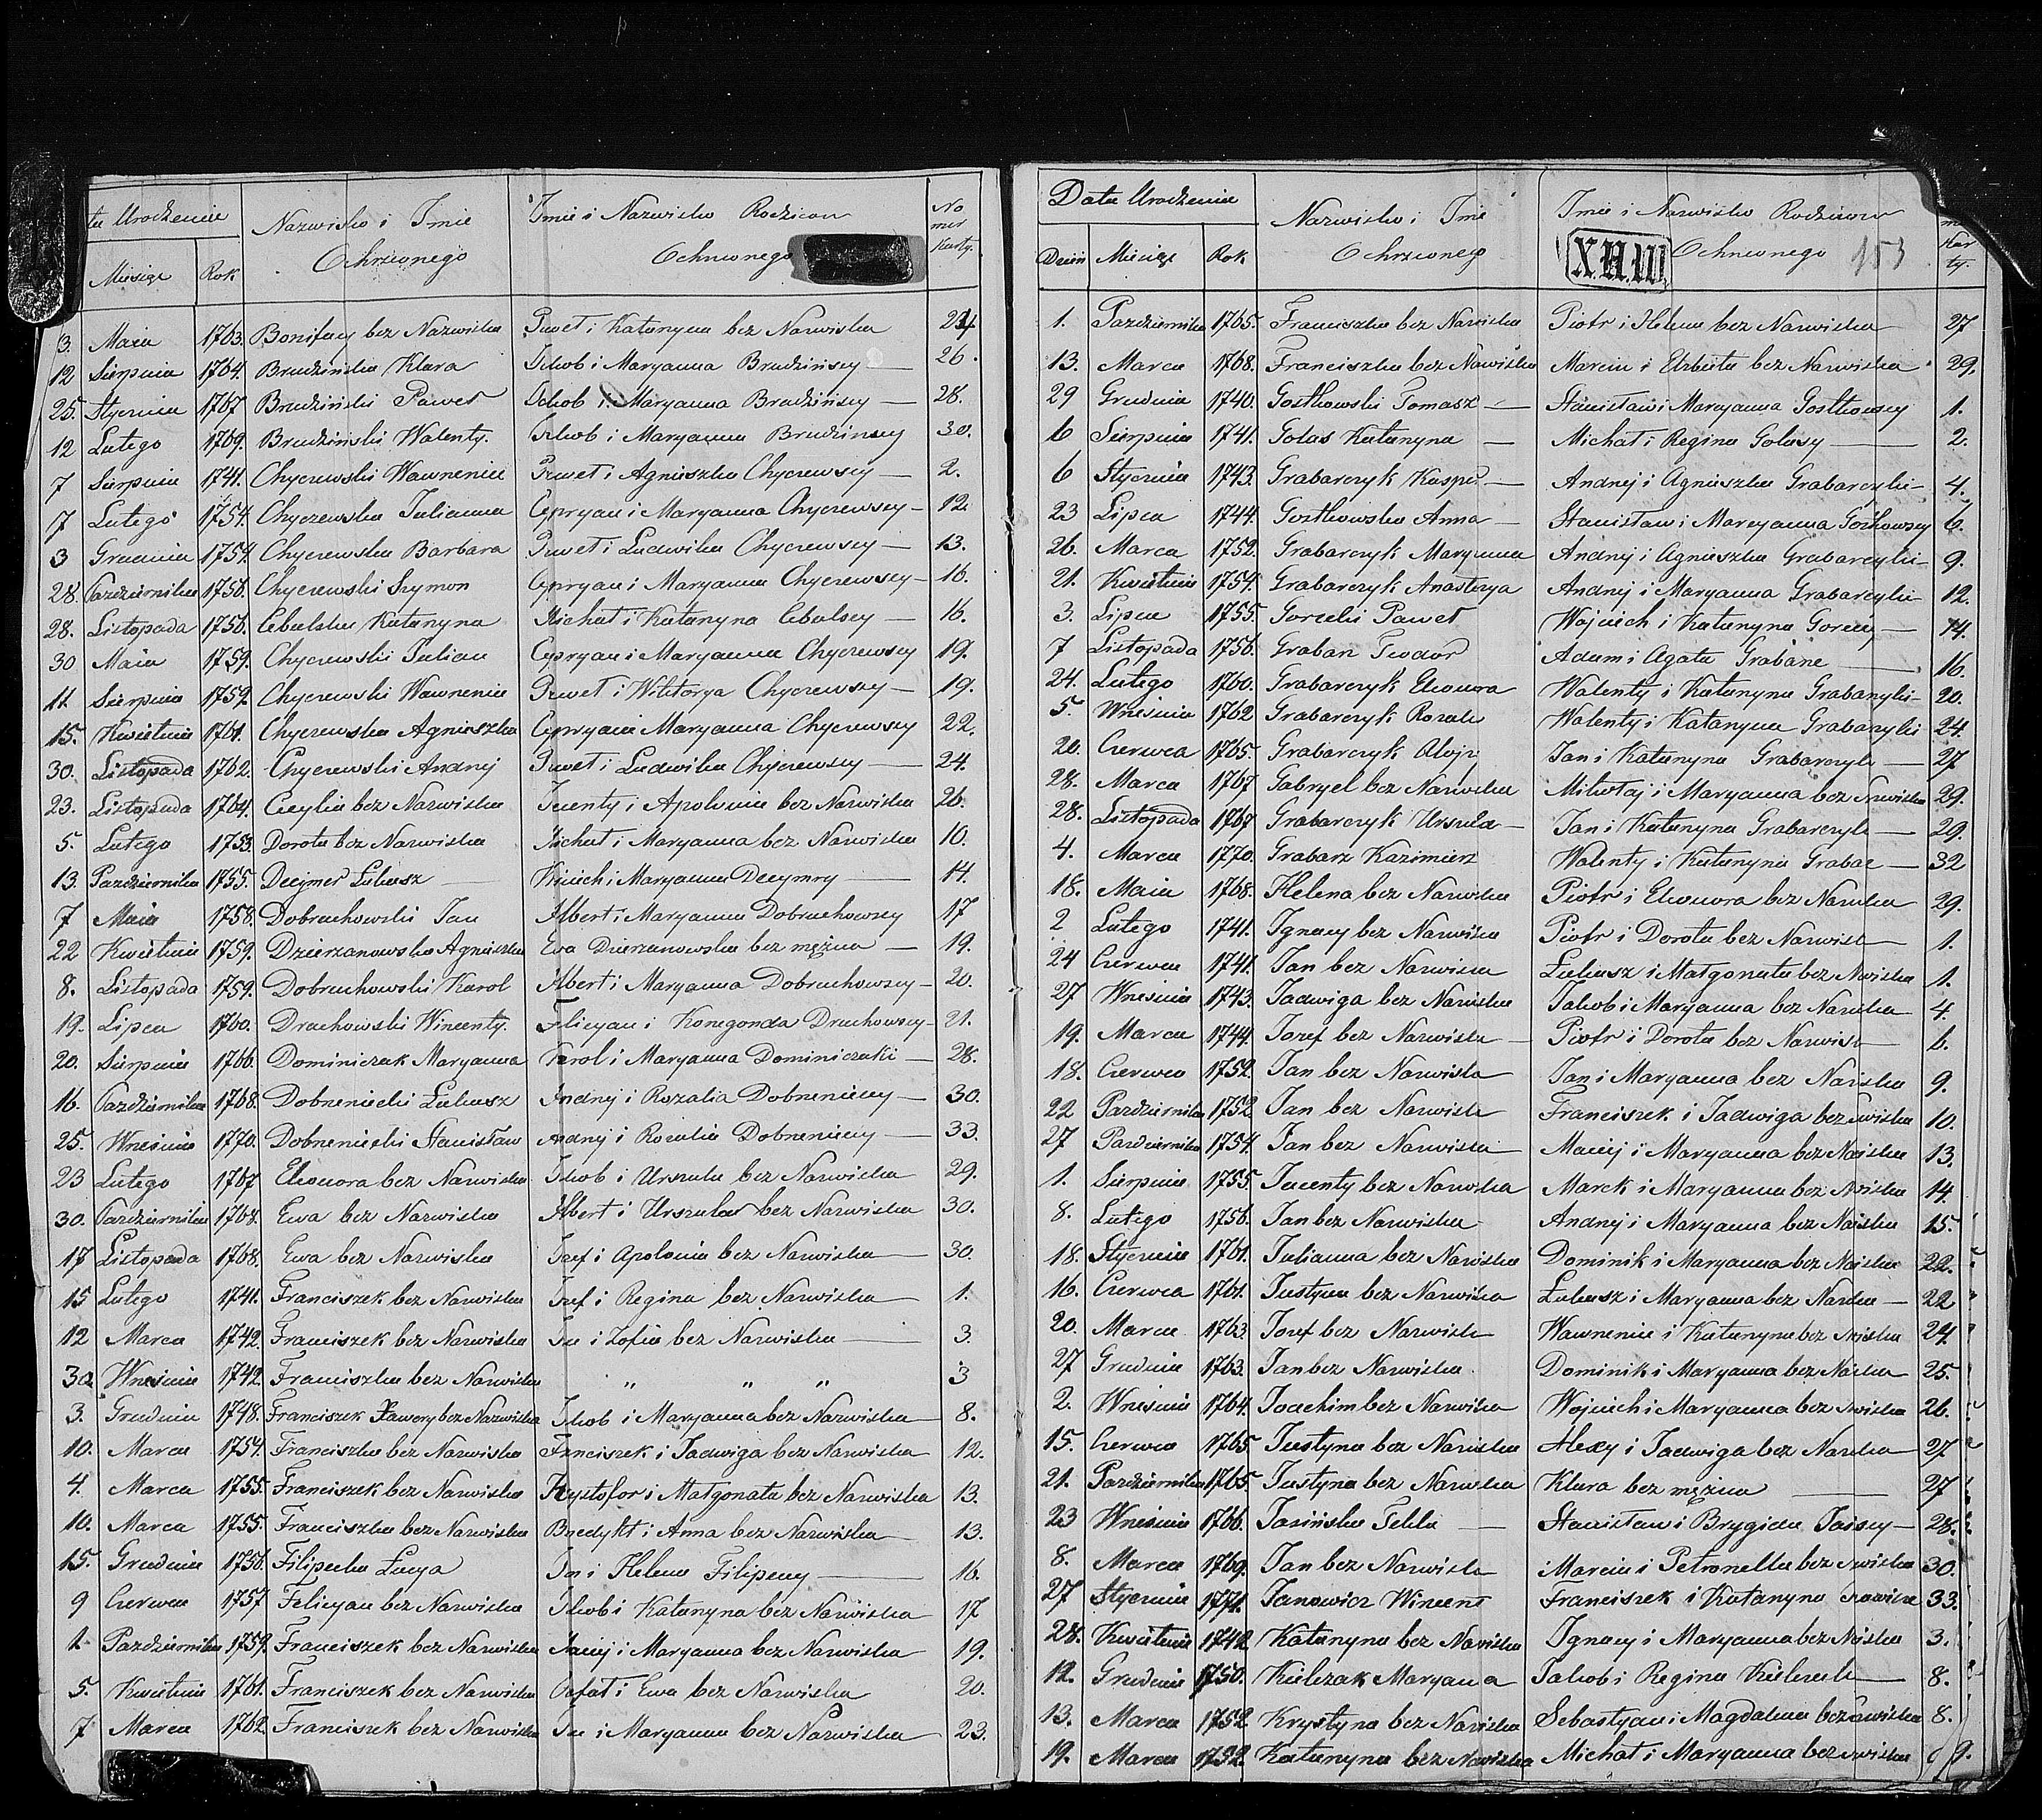 ta Urodzenia
Nazwisko i Imie
Ochrzconego
Imie i Nazwisko Rodzicow
Ochrzconego
No
mer
Karty.
Miesiąc Rok
3. Maia 1763. Bonifacy bez Nazwiska Paweł i Katarzyna bez Nazwiska 24
12 Sierpnia 1764. Brudzińska Klara Jakob i Maryanna Brudzińscy — 26.
25. Stycznia 1767 Brudziński Paweł Jakob i Maryanna Brudzińscy — 28.
12 Lutego 1769. Brudziński Walenty. Jakob i Maryanna Brudzinscy 30.
7 Sierpnia 1741. Chyczewski Wawrzeniec Paweł i Agnieszka Chyczewscy — 2.
7 Lutego 1754. Chyczewska Julianna Cypryan i Maryanna Chyczewscy — 12.
3 Grudnia 1754. Chyczewska Barbara Paweł i Ludwika Chyczewscy — 13.
28. Pazdziernika 1756. Chyczewski Szymon Cypryan i Maryanna Chyczewscy — 16.
28. Listopada 1756. Cebulska Katarzyna Michał i Katarzyna Cebulscy — 16.
30 Maia 1759. Chyczewski Julian Cypryan i Maryanna Chyczewscy 19.
11 Sierpnia 1759. Chyczewski Wawrzeniec Paweł i Wiktorya Chyczewscy — 19.
15. Kwietnia 1761. Chyczewska Agnieszka Cypryan i Maryanna Chyczewscy 22.
30. Listopada 1762. Chyczewski Andrzej Paweł i Ludwika Chyczewscy — 24.
23. Listopada 1764. Cecylia bez Nazwiska Jacenty i Apolonia bez Nazwiska 26.
5. Lutego 1753. Dorota bez Nazwiska Michał i Maryanna bez Nazwiska 10.
13. Pazdziernika 1755. Decymer Łukasz — Wojciech i Maryanna Decymry — 14.
7 Maia 1758. Dobruchowski Jan Albert i Maryanna Dobruchowscy 17
22 Kwietnia 1759. Dzierzanowska Agnieszka Ewa Dzierzanowska bez mężna — 19.
8. Listopada 1759. Dobruchowski Karol Albert i Maryanna Dobruchowscy — 20.
19. Lipca 1760. Druchowski Wincenty. Felicyan i Konegonda Druchowscy — 21.
20. Sierpnia 1766. Dominiczak Maryanna Karol i Maryanna Dominiczaki — 28.
16. Pazdziernika 1768. Dobrzeniecki Łukasz Andrzej i Rozalia Dobrzenieccy — 30.
25. Wrzesnia 1770. Dobrzeniecki Stanisław Andrzej i Rozalia Dobrzenieccy — 33.
23 Lutego 1767. Eleonora bez Nazwiska Jakob i Urszula bez Nazwiska 29.
30. Pazdziernika 1768. Ewa bez Nazwiska Albert i Urszula bez Nazwiska 30.
17 Listopada 1768. Ewa bez Nazwiska Jozef i Apolonia bez Nazwiska — 30.
15 Lutego 1741. Franciszek bez Nazwiska Jozef i Regina bez Nazwiska — 1.
12 Marca 1742. Franciszek bez Nazwiska Jan i Zofia bez Nazwiska — 3
30. Wrzesnia 1742. Franciszka bez Nazwiska „ „ „ 3
3. Grudnia 1748. Franciszek Xawery bez Nazwiska Jakob i Maryanna bez Nazwiska — 8.
10. Marca 1754. Franciszka bez Nazwiska Franciszek i Jadwiga bez Nazwiska 12.
4. Marca 1755. Franciszek bez Nazwiska Krzystofor i Małgorzata bez Nazwiska 13.
10. Marca 1755. Franciszka bez Nazwiska Benedykt i Anna bez Nazwiska 13.
15. Grudnia 1756. Filipecka Łucya Jan i Helena Filipeccy — 16.
9 Czerwca 1757 Felicyan bez Nazwiska Jakob i Katarzyna bez Nazwiska 17
1. Pazdziernika 1759. Franciszek bez Nazwiska Maciej i Maryanna bez Nazwiska 19.
5. Kwietnia 1761. Franciszek bez Nazwiska i Ewa bez Nazwiska 20.
7 Marca 1762. Franciszek bez Nazwiska Jan i Maryanna bez Nazwiska — 23.
Data Urodzenia
Nazwisko i Imie
Ochrzconego
Imie i Nazwisko Rodzicow
Ochrzconego
XH.III
153
Kar
ty.
Dzień Miesiąc Rok
1. Pazdziernika 1765. Franciszka bez Nazwiska Piotr i Helena bez Nazwiska 27
13. Marca 1768. Franciszka bez Nazwiska Marcin i Elzbieta bez Nazwiska 29.
29 Grudnia 1740. Gostkowski Tomasz — Stanisław i Maryanna Gostkowscy 1.
6 Sierpnia 1741. Golas Katarzyna — Michał i Regina Golasy — 2.
6 Stycznia 1743. Grabarczyk Kasper — Andrzej i Agnieszka Grabarczyki — 4.
23 Lipca 1744. Gostkowska Anna — Stanisław i Maryanna Gostkowscy 6.
26. Marca 1752. Grabarczyk Maryanna Andrzej i Agnieszka Grabarczyki — 9.
21. Kwietnia 1754. Grabarczyk Anastazya Andrzej i Maryanna Grabarczyki — 12.
3. Lipca 1755. Gorecki Paweł Wojciech i Katarzyna Goreccy — 14.
7 Listopada 1756. Graban Teodor Adam i Agata Grabane — 16.
24. Lutego 1760. Grabarczyk Eleonora Walenty i Katarzyna Grabarzyki — 20.
5. Wrzesnia 1762 Grabarczyk Rozalia Walenty i Katarzyna Grabarzyki 24.
20. Czerwca 1765. Grabarczyk Alojz Jan i Katarzyna Grabarczyk — 27
28. Marca 1767 Gabryel bez Nazwiska Mikołaj i Maryanna bez Nazwiska 29.
28. Listopada 1767 Grabarczyk Urszula — Jan i Katarzyna Grabarczyk — 29.
4. Marca 1770. Grabarz Kazimierz Walenty i Katarzyna Grabarze — 32
18. Maia 1768. Helena bez Nazwiska Piotr i Eleonora bez Nazwiska 29.
2 Lutego 1741. Ignacy bez Nazwiska Piotr i Dorota bez Nazwiska 1.
24 Czerwca 1741. Jan bez Nazwiska Łukasz i Małgorzata bez Nazwiska 1.
27 Wrzesnia 1743. Jadwiga bez Nazwiska Jakob i Maryanna bez Nazwiska 4.
19. Marca 1744. Jozef bez Nazwiska — Piotr i Dorota bez Nazwiska 6.
18. Czerwca 1752. Jan bez Nazwiska Jan i Maryanna bez Nazwiska 9.
22 Pazdziernika 1752 Jan bez Nazwiska Franciszek i Jadwiga bez Nazwiska 10.
27 Pazdziernika 1754. Jan bez Nazwiska Maciej i Maryanna bez Nazwiska 13.
1. Sierpnia 1755. Jacenty bez Nazwiska Marek i Maryanna bez Nazwiska 14.
8. Lutego 1756. Jan bez Nazwiska Andrzej i Maryanna bez Nazwiska 15.
18. Stycznia 1761. Julianna bez Nazwiska Dominik i Maryanna bez Nazwiska 22.
16. Czerwca 1761. Justyna bez Nazwiska Łukasz i Maryanna bez Nazwiska — 22
20. Marca 1763. Jozef bez Nazwiska Wawrzeniec i Katarzyna bez Nazwiska 24.
27 Grudnia 1763. Jan bez Nazwiska Dominik i Maryanna bez Nazwiska 25.
2. Wrzesnia 1764. Joachim bez Nazwiska Wojciech i Maryanna bez Nazwiska 26.
15. Czerwca 1765 Justyna bez Nazwiska Alexy i Jadwiga bez Nazwiska 27
21. Pazdziernika 1765. Justyna bez Nazwiska Klara bez mężna — 27
23 Wrzesnia 1766. Jasińska Tekla — Stanisław i Brygida Jasiscy — 28.
8. Marca 1769. Jan bez Nazwiska Marcin i Petronella bez Nazwiska 30.
27 Stycznia 1771. Janowicz Wincent Franciszek i Katarzyna 33.
28. Kwietnia 1742 Katarzyna bez Nazwiska Ignacy i Maryanna bez Nazwiska 3.
12. Grudnia 1750. Kulczak Maryanna Jakob i Regina Kulczak — 8.
13. Marca 1752 Krystyna bez Nazwiska Sebastyan i Magdalena bez Nazwiska 8.
19. Marca 1752. Katarzyna bez Nazwiska Michał i Maryanna bez Nazwiska 9.